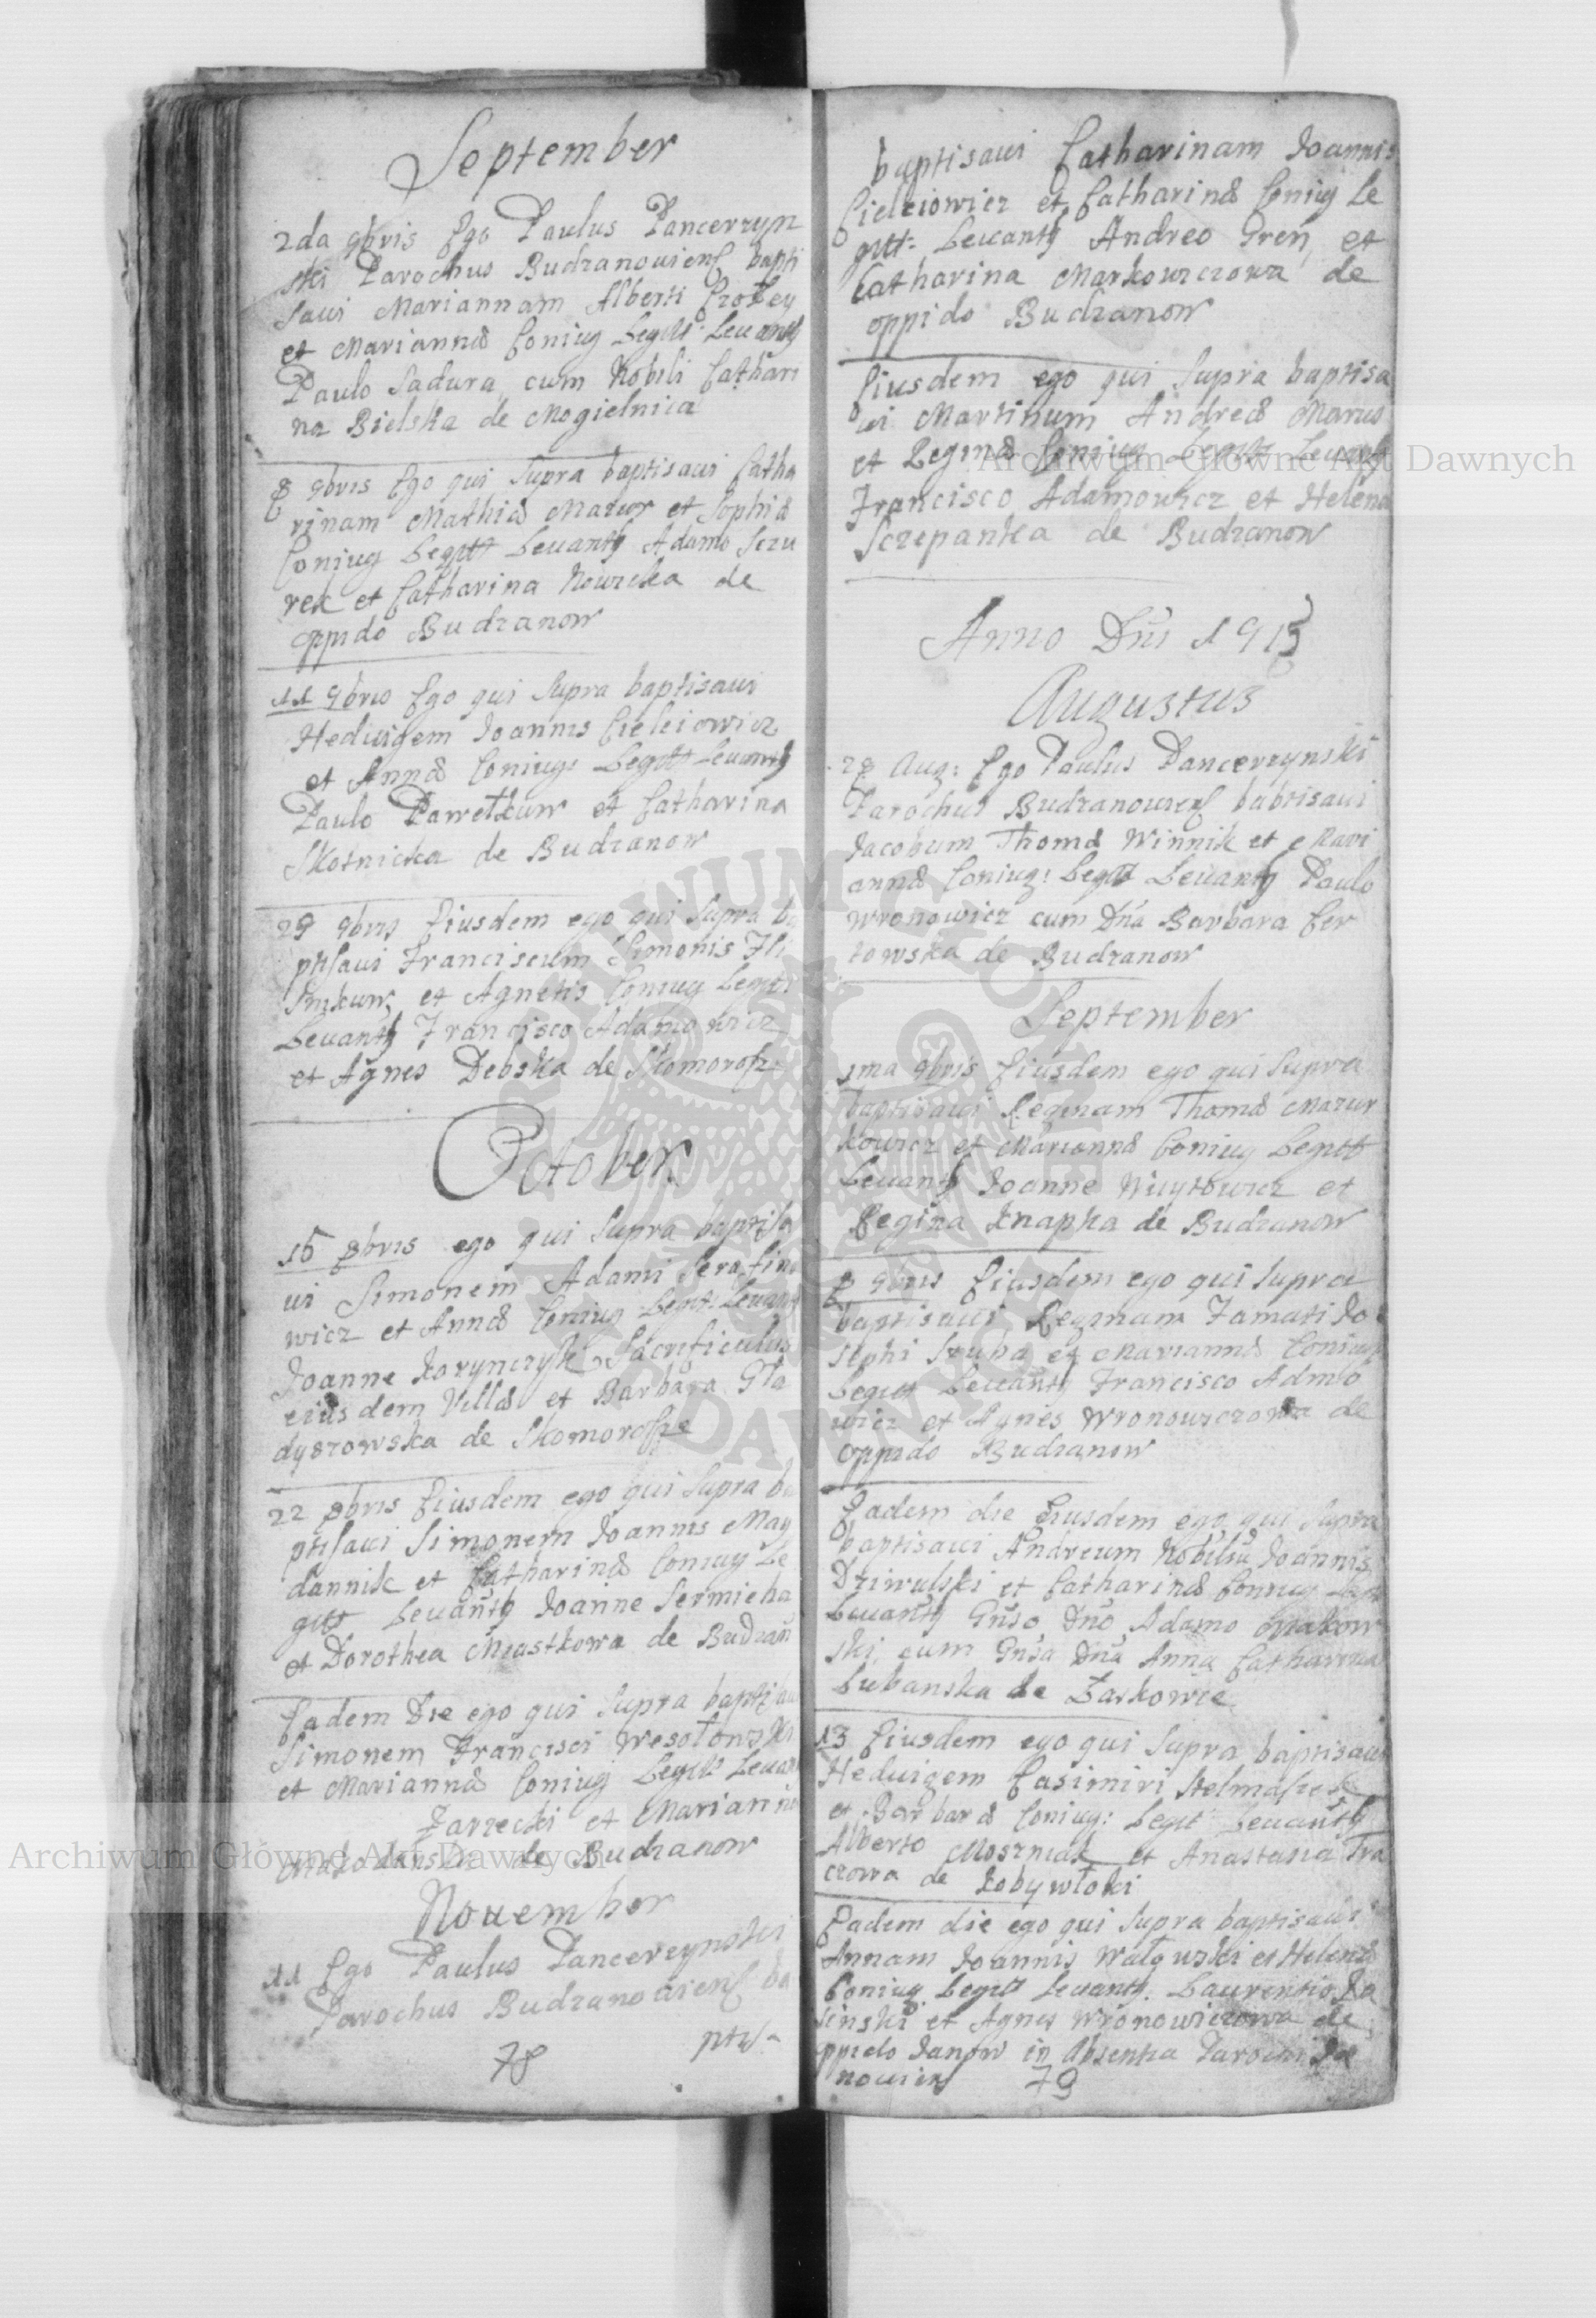 September
2da 9bris Ego Paulus Pancerzyn
ski Parochus Budzanouiens bapti
saui Mariannam Alberti
et Mariannæ Coniug Legitt: Leuantb
Paulo Sadura cum Nobili Cathari
na Bielska de Mogielnica
8 9bris Ego qui supra baptisaui Catha
rinam Mathiæ Mazur et Sophiæ
Coniug Legitt Leuantb Adamo Szu
rek et Catharina Nowicka de
oppido Budzanow
11 9bris Ego qui supra baptisaui
Heduigem Joannis Cielciowicz
et Annæ Coniugs Legitt Leuantb
Paulo Pawełkuw et Catharina
Skotnicka de Budzanow
29 9bris Eiusdem ego qui supra ba
ptisaui Franciscum Simonis
et Agnetis Coniug Legitt
Leuantb Francisco Adamowicz
et Agnes Debska de Skomorosze
October
15 8bris ego qui supra baptisa
ui Simonem Adami Serafino
wicz et Annæ Coniug Legitt: Leuant
Joanne Korynczyk Sacrificulus
eiusdem Villæ et Barbara Gła
dyszowska de Skomorosze
22 8bris Eiusdem ego qui supra ba
ptisaui Simonem Joannis May
dannik et Catharinæ Coniug Le
gitt Leuantb Joanne Sermieha
et Dorothea Miastkowa de Budzan
Eadem Die ego qui supra baptisaui
Simonem Francisci Wesołowski
et Mariannæ Coniug Legitt Leuan
Zarzecki et Marianna
de Budzanow
Nouember
11 Ego Paulus Pancerzynski
Parochus Budzanouiens ba
78 ptisa
baptisaui Catharinam Joannis
Cielciowicz et Catharinæ Coniug Le
gitt: Leuantb Andreo Gren, et
Catharina Markowiczowa de
oppido Budzanow
Eiusdem ego qui supra baptisa
ui Martinum Andreæ Marus
et Reginæ Coniug Legitt Leuantb
Francisco Adamowicz et Helena
Sczepanka de Budzanow
Anno Dni 1713
Augustus
28 Aug: Ego Paulus Pancerzynski
Parochus Budzanouiens babtisaui
Jacobum Thomæ Winnik et Mari
annæ Coniug: Legitt Leuantb Paulo
Wronowicz cum Dna Barbara Cer
kowska de Budzanow
September
1ma 9bris Eiusdem ego qui supra
baptisaui Reginam Thomæ Mazur
kowicz et Mariannæ Coniug Legitt
Leuantb Joanne Wuytowicz et
Regina Knapka de Budzanow
8 9bris Eiusdem ego qui supra
baptisaui Reginam Famati Jo
sephi Szuba et Mariannæ Coniug
Legitt Leuantb Francisco Admo
wicz et Agnes Wronowiczowa de
oppido Budzanow
Eadem die Eiusdem ego qui supra
baptisaui Andreum Nobiliu Joannis
Dziwulski et Catharinæ Coniug Legitt
Leuantb Gnso Dno Adamo Makow
ski, cum Gnsa Dna Anna Catharina
Lubanska de Laskowie
13 Eiusdem ego qui supra baptisaui
Heduigem Casimiri Stelmaszek
et Barbaræ Coniug: Legitt Leuantb
Alberto Moszniak et Anastasia Tka
czowa de Kobywłoki
Eadem die ego qui supra baptisaui
Annam Joannis Wałowski et Helenæ
Coniug Legitt Leuantb. Laurentio Ja
sinski et Agnes Wronowiczowa de
oppido Janow in Absentia Parochi Ja
nouiens 79
Archiwum Główne Akt Dawnych
Archiwum Główne Akt Dawnych
ARCHIWUM GŁÓWNE AKT DAWNYCH